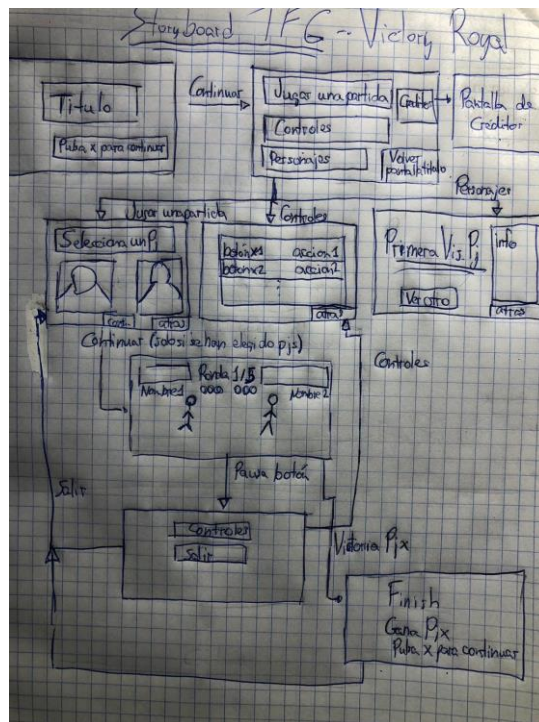 Storyboard TFG - Victory Royal
Titulo
Pulsa x para continuar
Continuar
Jugar una partida
Creditos
Controles
Personajes
Volver
pantalla titulo
Pantalla de
Créditos
Personajes
Jugar una partida
Controles
Selecciona un Pj
Cont.
atras
botonx1 accion1
botonx2 accion2
atras
Primera Vis. Pj
Ver otro
Info
atras
Continuar (solo si se han elegido pjs)
Controles
Ronda 1/3
Nombre1
Nombre2
Pausa botón
Salir
Controles
Salir
Victoria Pjx
Finish
Gana Pjx
Pulsa x para continuar